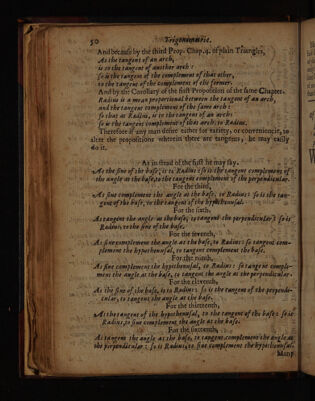 50 Trigonometrie.
And because by the third Prop. Chap. 4. of plain Triangles,
As the tangent of an arch,
is to the tangent of another arch:
so is the tangent of the complement of that other,
to the tangent of the complement of the former.
And by the Corollary of the first Proposition of the same Chapter.
Radius is a mean proportional between the tangent of an arch,
and the tangent complement of the same arch:
so that as Radius, is to the tangent of an arch:
so is the tangent complement of that arch, to Radius.
Therefore if any man desire either for variety, or conveniencie, to
alter the propositions wherein there are tangents, he may easily
do it.
As in stead of the first he may say.
As the sine of the base, is to Radius: so is the tangent complement of
the angle at the base, to the tangent complement of the perpendicular.
For the third,
As sine complement the angle at the base, to Radius: so is the tan-
gent of the base, to the tangent of the hypothenusal.
For the sixth.
As tangent the angle at the base, to tangent the perpendicular: so is
Radius, to the sine of the base.
For the seventh,
As sine complement the angle at the base, to Radius: so tangent com-
plement the hypothenusal, to tangent complement the base.
For the ninth,
As sine complement the hypothenusal, to Radius: so tangent comple-
ment the angle at the base, to tangent the angle at the perpendicular.
For the eleventh,
As the sine of the base, is to Radius: so is the tangent of the perpendi-
cular, to tangent the angle at the base.
For the thirteenth,
As the tangent of the hypothenusal, to the tangent of the base: so is
Radius, to sine complement the angle at the base.
For the sixteenth,
As tangent the angle at the base, to tangent complement the angle at
the perpendicular: so is Radius, to sine complement the hypothenusal.
Many